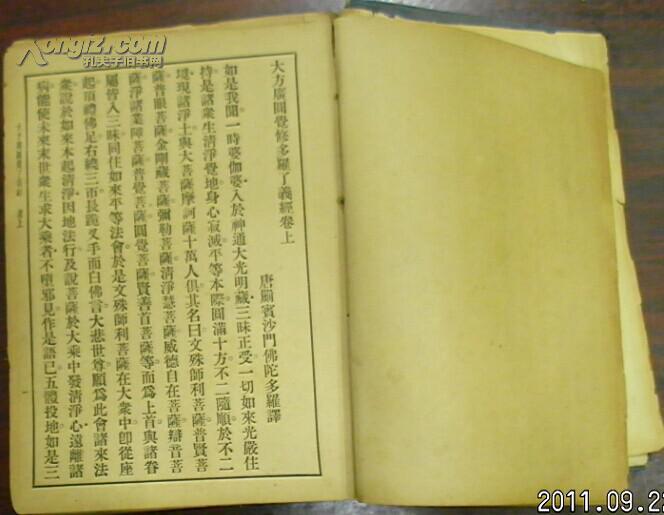 大方廣圓覺修多羅了義經卷上
唐罽賓沙門佛陀多羅譯
如是我聞一時婆伽婆入於神通大光明藏三昧正受一切如來光嚴住
持是諸衆生清淨覺地身心寂滅平等本際圓滿十方不二隨順於不二
境現諸淨土與大菩薩摩訶薩十萬人俱其名曰文殊師利菩薩普賢菩
薩普眼菩薩金剛藏菩薩彌勒菩薩清淨慧菩薩威德自在菩薩辯音菩
薩淨諸業障菩薩普覺菩薩圓覺菩薩賢善首菩薩等而爲上首與諸眷
屬皆入三昧同住如來平等法會於是文殊師利菩薩在大衆中卽從座
起頂禮佛足右繞三帀長跪叉手而白佛言大悲世尊願爲此會諸來法
衆說於如來本起清淨因地法行及說菩薩於大乘中發清淨心遠離諸
病能使未來末世衆生求大乘者不墮邪見作是語已五體投地如是三
卷上
Kongfz.com
孔夫子旧书网
2011.09.2